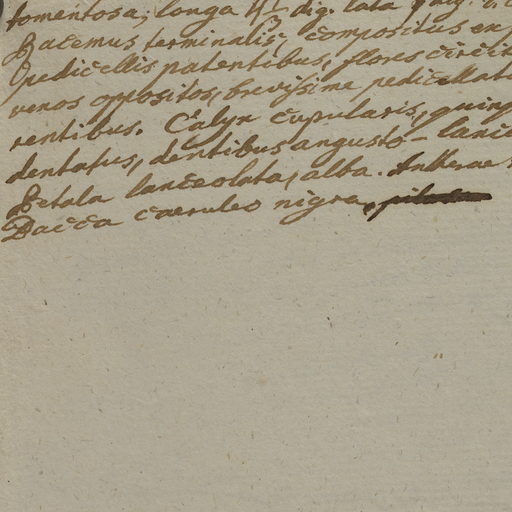 tomentosa, longa 4½ dig. lata
Racemus terminalis, compositus
pedicellis patentibus, flores circit
venos oppositos, brevissime pedicellat
rentibus. Calyx cupularis, quinq
dentatus, dentibus angusto-lance
Petala lanceolata, alba. Antherae
Bacca caeruleo nigra,